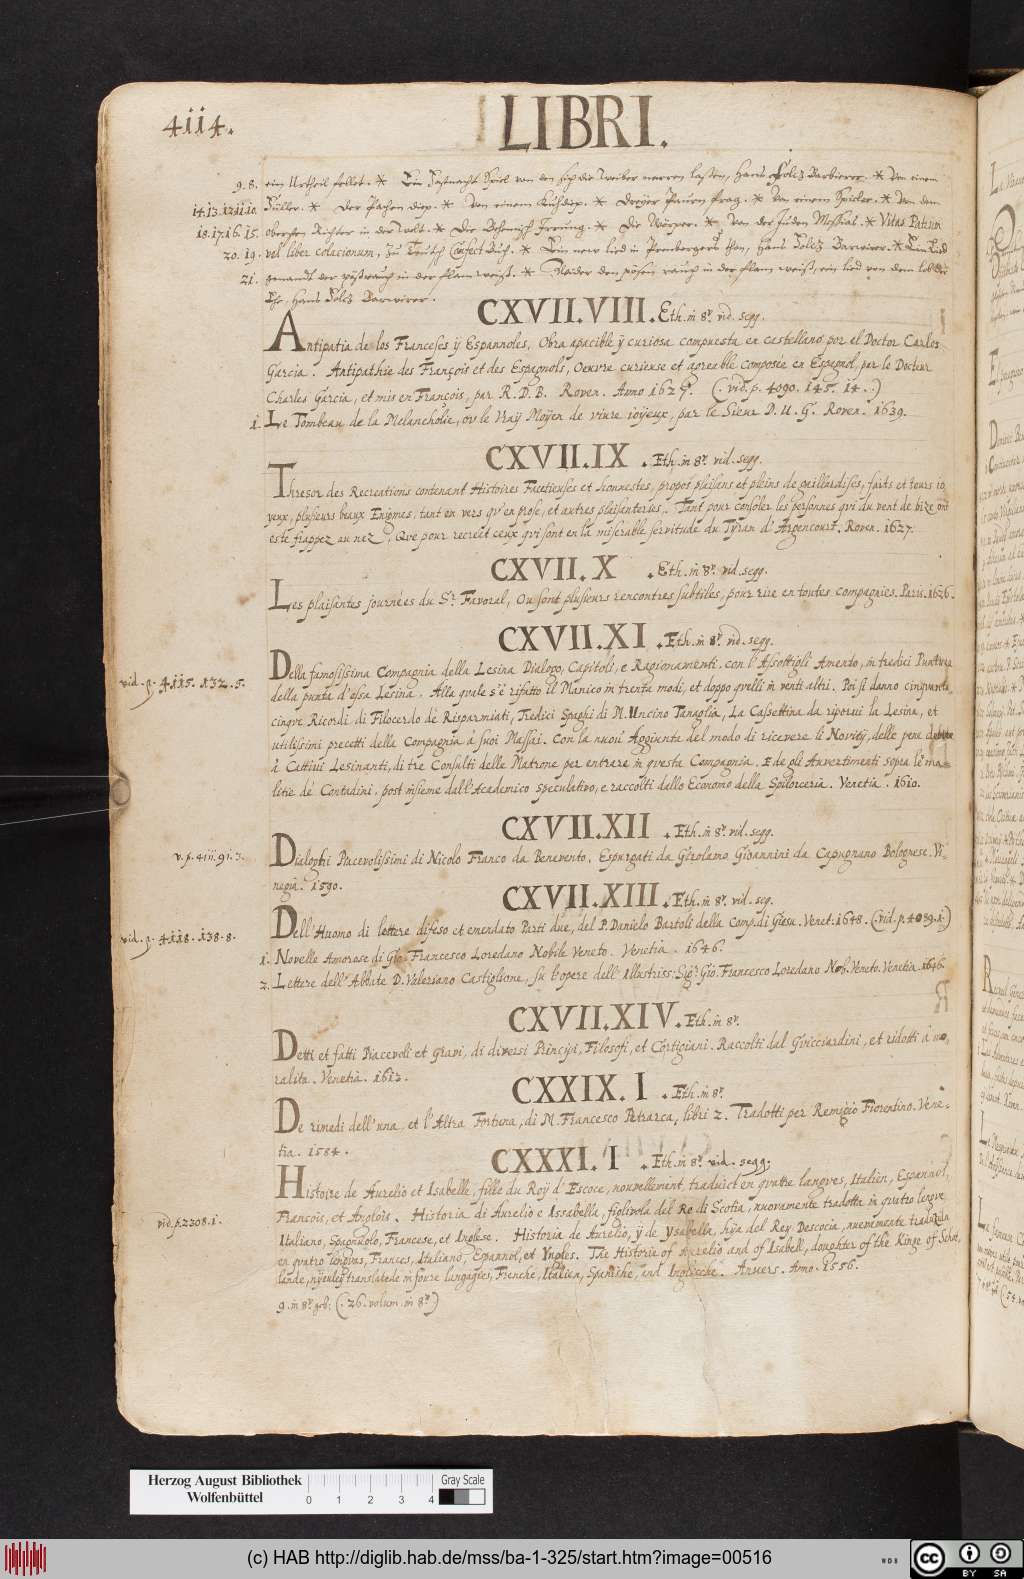 4114.
LIBRI.
9. 8. ein Urtheil fellet. * Ein Fastnacht Spiel von den sich die Weiber narren lassen, Hans Foltz Barbierer. * Von einem
14.13.12.11.10. Füller. * Der * Von einem * Dreyer frag. * Von einem Spieler. * Von dem
18.17.16.15. obersten Richter in der Welt. * Die Irrung. * Die * Von der Juden Messias. * Vitas Patrum
20. 19. vel liber colacionum, zu Teutsch Confect Buch. * Ein new lied in thon, Hans Foltz Barwirer. * Ein Lied
21. genandt der in der flam weist. * den bösen rauch in der flam weiß, ein lied von dem
Hans Foltz Barwirer.
CXVII.VIII. Eth. in 8º. vid. segg.
Antipatia de los Franceses ÿ Espannoles, Obra apacible ÿ curiosa compuesta en castellano por el Doctor Carlos
Garcia. Antipathie des François et des Espagnols, Oeuvre curieuse et agreable Composée en Espagnol, par le Docteur
Charles Garcia, et mis en François, par R. D. B. Roven. Anno 1627. (. vid. p. 4090. 145. 14. .)
1. Le Tombeau de la Melancholie, ou le Vraÿ Moyen de viure ioyeux, par le Sieur D. U. G. Roven. 1639.
CXVII.IX . Eth. in 8º. vid. segg.
Thresor des Recreations contenant Histoires Facetieuses et honnestes, propos plaisans et pleins de gaillardises, faits et tours io,
yeux, plusieurs beaux Enigmes, tant en vers qu'en prose, et autres plaisanteries. Tant pour consoler les personnes qui du vent de bize ont
esté frappez au nez, Que pour recreer ceux qui sont en la miserable servitude du Tyran d'Argencourt. Roven. 1627.
CXVII.X . Eth. in 8º. vid. segg.
Les plaisantes journées du Sr. Favoral, Ou sont plusieurs rencontres subtiles, pour rire en toutes compagnies. Paris. 1626.
CXVII.XI . Eth. in 8º. vid. segg.
vid. g. 4115. 132. 5. Della famosissima Compagnia della Lesina Dialogo, Capitoli, e Ragionamenti. con l'Assottigli Amento, in tredici Punture
della punta d'essa Lesina. Alla quale s'è rifatto il Manico in trenta modi, et doppo quelli in venti altri. Poi si danno cinquanta
cinque Ricordi di Filocerdo de Risparmiati, Tredici Spaghi di M. Uncino Tanaglia, La Cassettina da riporui la Lesina, et
utilissimi precetti della Compagnia à suoi Massai. Con la nuou' Aggiunta del modo di ricevere li Novitÿ, delle pene debite
à Cattiui Lesinanti, di tre Consulti delle Matrone per entrare in questa Compagnia. E de gli Auvertimenti sopra le ma-
litie de Contadini, post' insieme dall'Academico speculativo, e raccolti dallo Economo della Spilorceria. Venetia. 1610.
CXVII.XII . Eth. in 8º. vid. segg.
v. p. 4111. 91. 3. Dialoghi Piacevolissimi di Nicolo Franco da Benevento, Espurgati da Girolamo Gioannini da Capugnano Bolognese. Vi-
negia. 1590.
CXVII.XIII . Eth. in 8º. vid. seg.
vid. g. 4118. 138. 8. Dell'Huomo di lettere difeso et emendato Parti due, del P. Daniele Bartoli della Comp. di Giesu. Venet. 1648. (. vid. p. 4089. 1. )
1. Novelle Amorose di Gio: Francesco Loredano Nobile Veneto. Venetia. 1646.
2. Lettere dell'Abbate D. Valeriano Castiglione, sù l'opere dell'Illustriss: Sigr: Gio. Francesco Loredano Nob. Veneto. Venetia. 1646.
CXVII.XIV. Eth. in 8º.
Detti et fatti Piacevoli et gravi, di diversi Principi, Filosofi, et Cortigiani. Raccolti dal Guicciardini, et ridotti à mo,
ralita. Venetia. 1613.
CXXIX. I . Eth. in 8º.
De rimedi dell'una et l'Altra Fortuna, di M. Francesco Petrarca, libri 2. Tradotti per Remigio Fiorentino. Vene-
tia. 1584.
CXXXI. I . Eth. in 8º. vid. segg.
vid. p. 2308. 1. Histoire de Aurelio et Isabelle, fille du Roÿ d'Escoce, nouvellement traduict en quatre langves, Italien, Espannol,
Francois, et Anglois. Historia di Aurelio e Issabella, figlivola del Re di Scotia, nuovamente tradotta in quatro lengve
Italiano, Spagnuolo, Francese, et Inglese. Historia de Aurelio, ÿ de Ysabella, hija del Rey Descocia, nuevamente traduzida
en quatro lenguas, Frances, Italiano, Espannol, et Yngles. The Historie of Aurelio and of Isabell, doughter of the Kinge of Schot,
lande, nyenley translatede in foure lungagies, Frenche, Italien, Spanishe, and Inglische. Anvers. Anno. 1556.
9. in 8º. geb; (. 26. volum. in 8º. )
Herzog August Bibliothek
Wolfenbüttel
0 1 2 3 4
Gray Scale
(c) HAB http://diglib.hab.de/mss/ba-1-325/start.htm?image=00516
WDB
cc BY SA